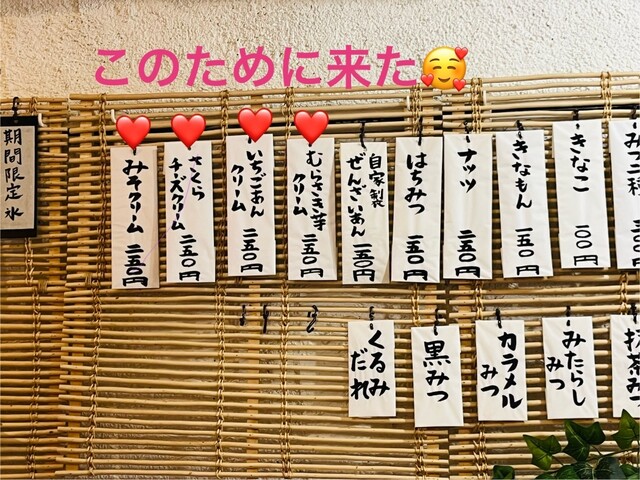 このために来た🥰
きなこ
一〇〇円
きなもん
一五〇円
ナッツ
二五〇円
はちみつ
一五〇円
自家製
ぜんざいあん
二五〇円
むらさき芋
クリーム
二五〇円
いちごあん
クリーム
二五〇円
さくら
チーズクリーム
二五〇円
みそクリーム
二五〇円
期間限定氷
抹茶みつ
みたらし
みつ
カラメル
みつ
黒みつ
くるみ
だれ